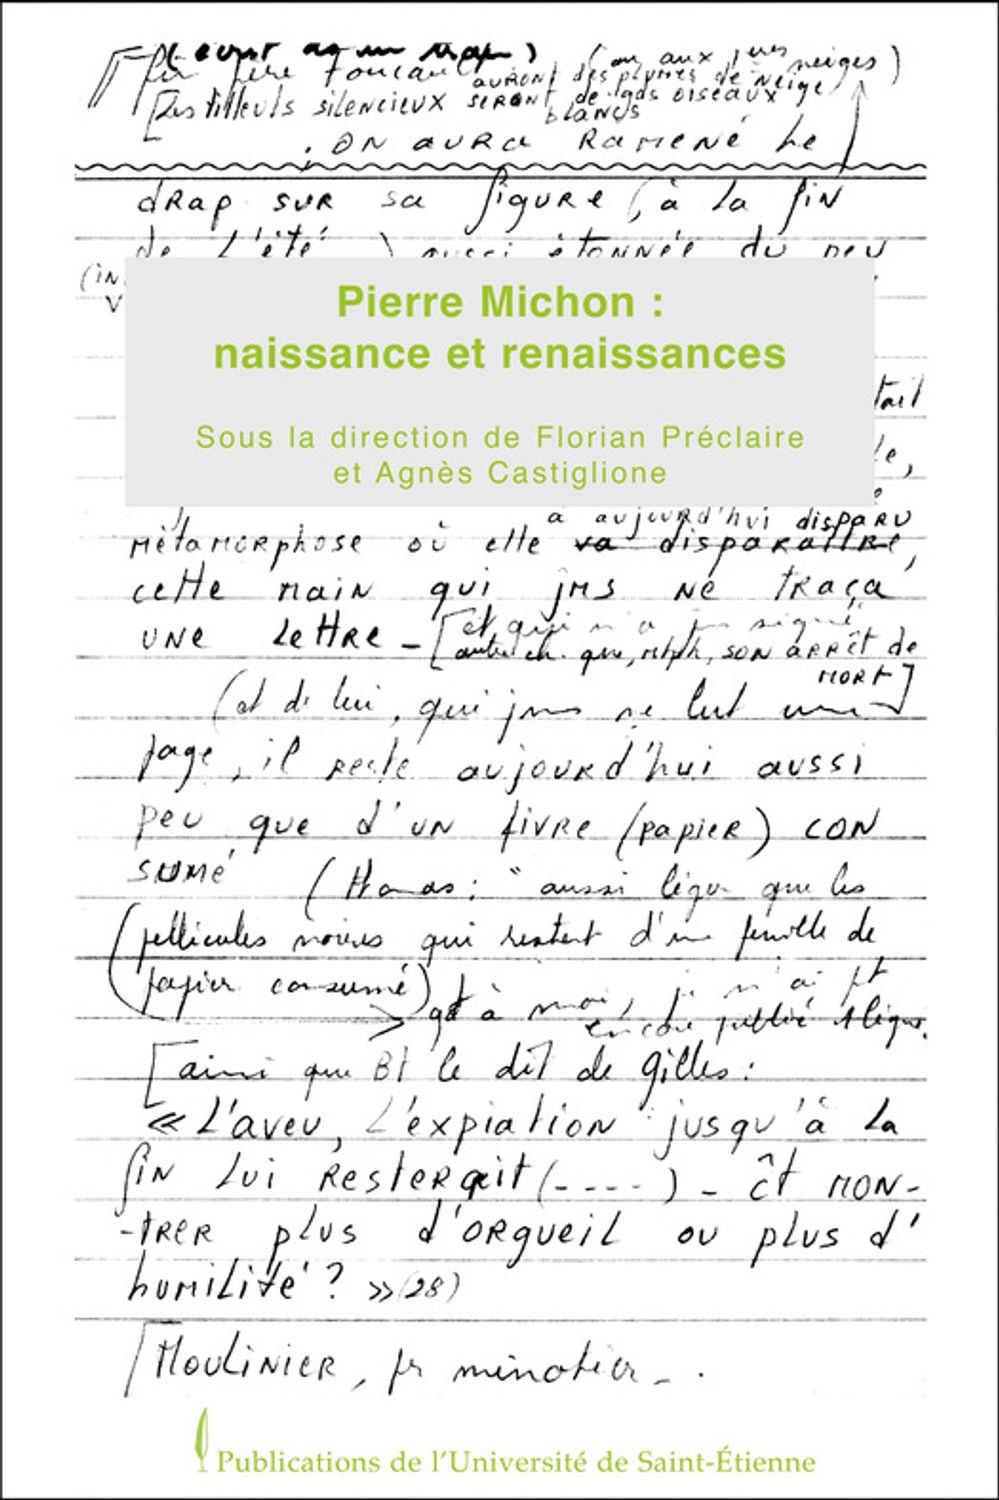 père Foucault (ou aux 1ères neiges)
auront des plumes de neige
[Les tilleuls silencieux seront de gds oiseaux
blancs
: on aura ramené le
drap sur sa figure (, à la fin
de l'été ) aussi étonnée du peu
(in
V
Pierre Michon :
naissance et renaissances
tait
Sous la direction de Florian Préclaire
le,
et Agnès Castiglione
a aujourd'hui disparu
métamorphose où elle va disparaître,
cette main qui jms ne traça
une lettre – [et qui n'a signé
autre ch. que, son arrêt de
mort]
(et de lui, qui jms ne lut une
page, il reste aujourd'hui aussi
peu que d'un livre (papier) con
sumé
: "aussi léger que les
pellicules noires qui restent d'une feuille de
papier consumé)
qt à moi, je n'ai pt
encore publié
[ainsi que Bt le dit de Gilles :
« L'aveu, l'expiation jusqu'à la
fin lui resterait (----) – ct mon-
-trer plus d'orgueil ou plus d'
humilité ? » (28)
[Moulinier, pr minotier – .
Publications de l'Université de Saint-Étienne